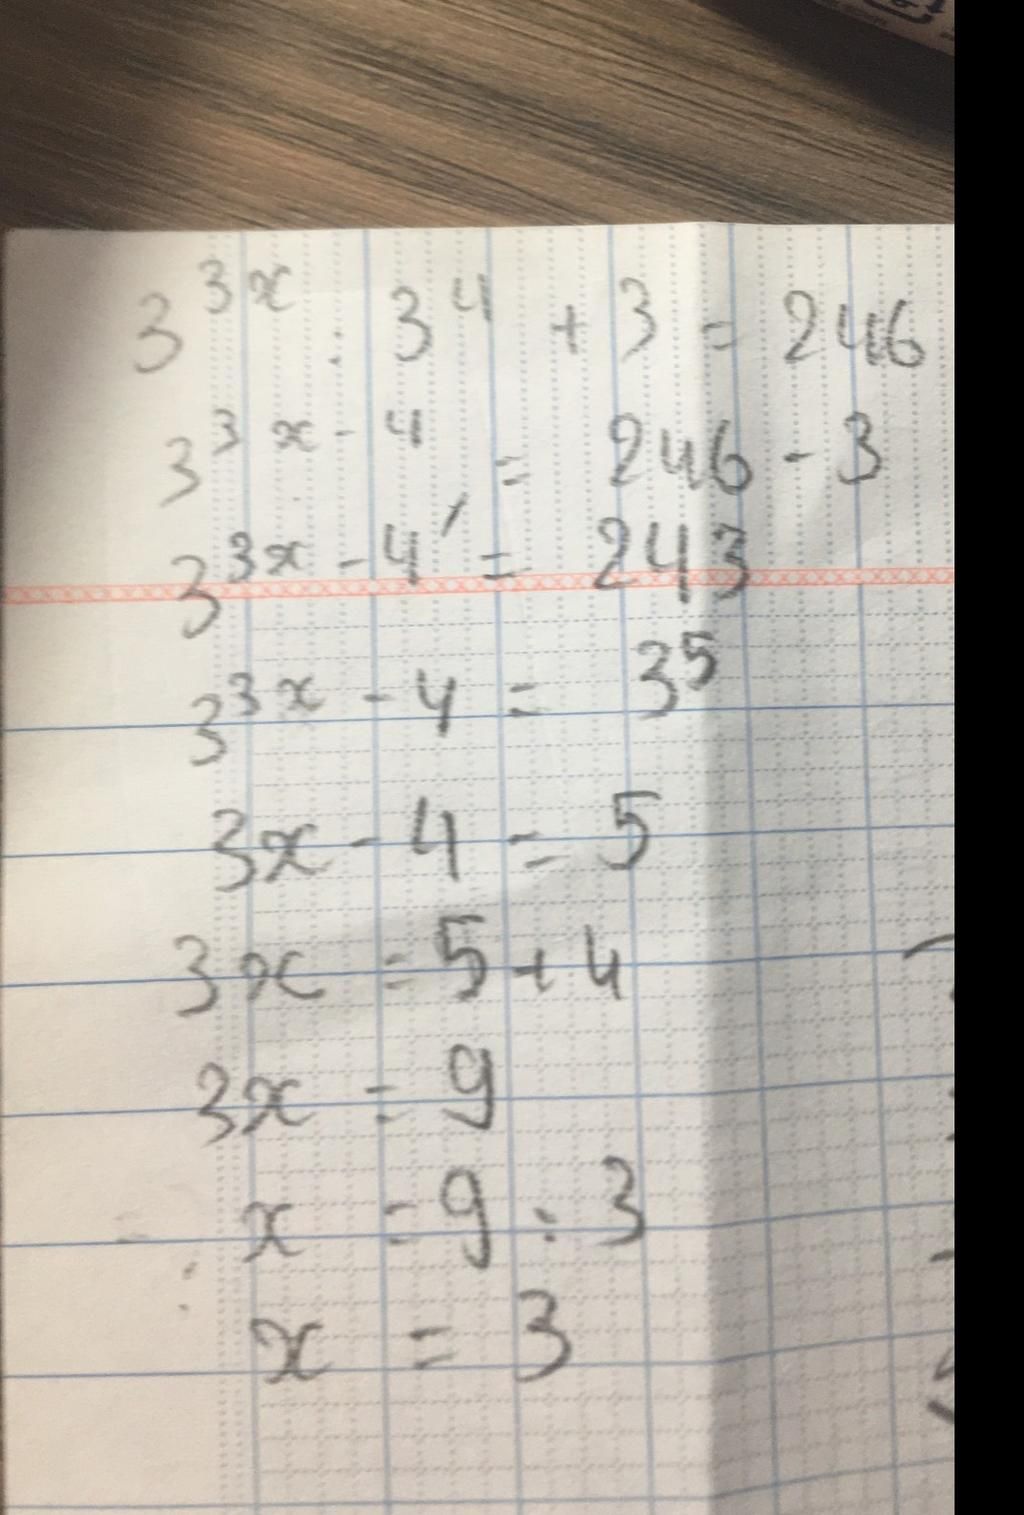 3^{3x} : 3^4 + 3 = 246
3^{3x-4} = 246 - 3
3^{3x-4} = 243
3^{3x-4} = 3^5
3x - 4 = 5
3x = 5 + 4
3x = 9
x = 9 : 3
x = 3